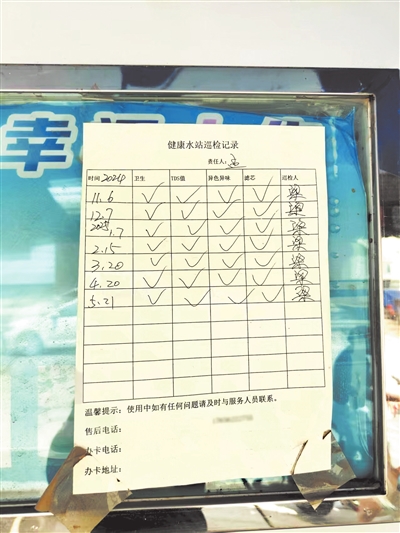 幸
健康水站巡检记录
责任人:
时间2024 卫生 TDS值 异色异味 滤芯 巡检人
11.6 ✓ ✓ ✓ ✓ 梁
12.7 ✓ ✓ ✓ ✓ 梁
2025 1.7 ✓ ✓ ✓ ✓ 梁
2.15 ✓ ✓ ✓ ✓ 梁
3.20 ✓ ✓ ✓ ✓ 梁
4.20 ✓ ✓ ✓ ✓ 梁
5.21 ✓ ✓ ✓ ✓ 梁
温馨提示：使用中如有任何问题请及时与服务人员联系。
售后电话：
办卡电话：
办卡地址：